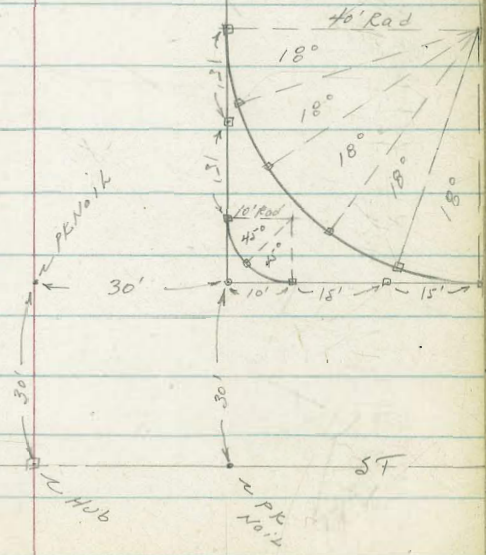 40' Rad
18°
18°
18°
18°
18°
15'
15'
10' Rad
45°
45°
PK Nail
30'
10'
15'
15'
30'
30'
ST
Hub
PK
Nail